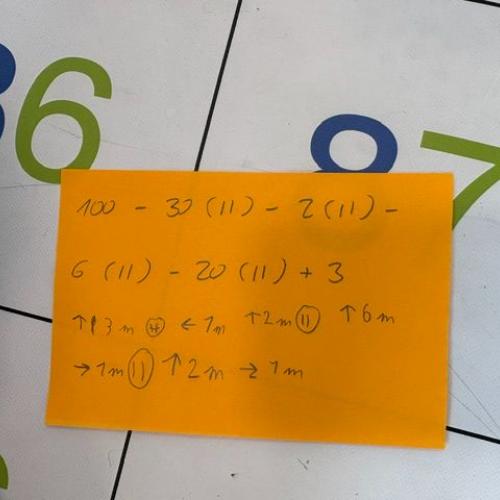 86
87
100 - 30 (11) - 2 (11) -
6 (11) - 20 (11) + 3
↑ 3 m (11) ← 1m ↑2m (11) ↑ 6 m
→ 1m (11) ↑ 2 m → 1 m